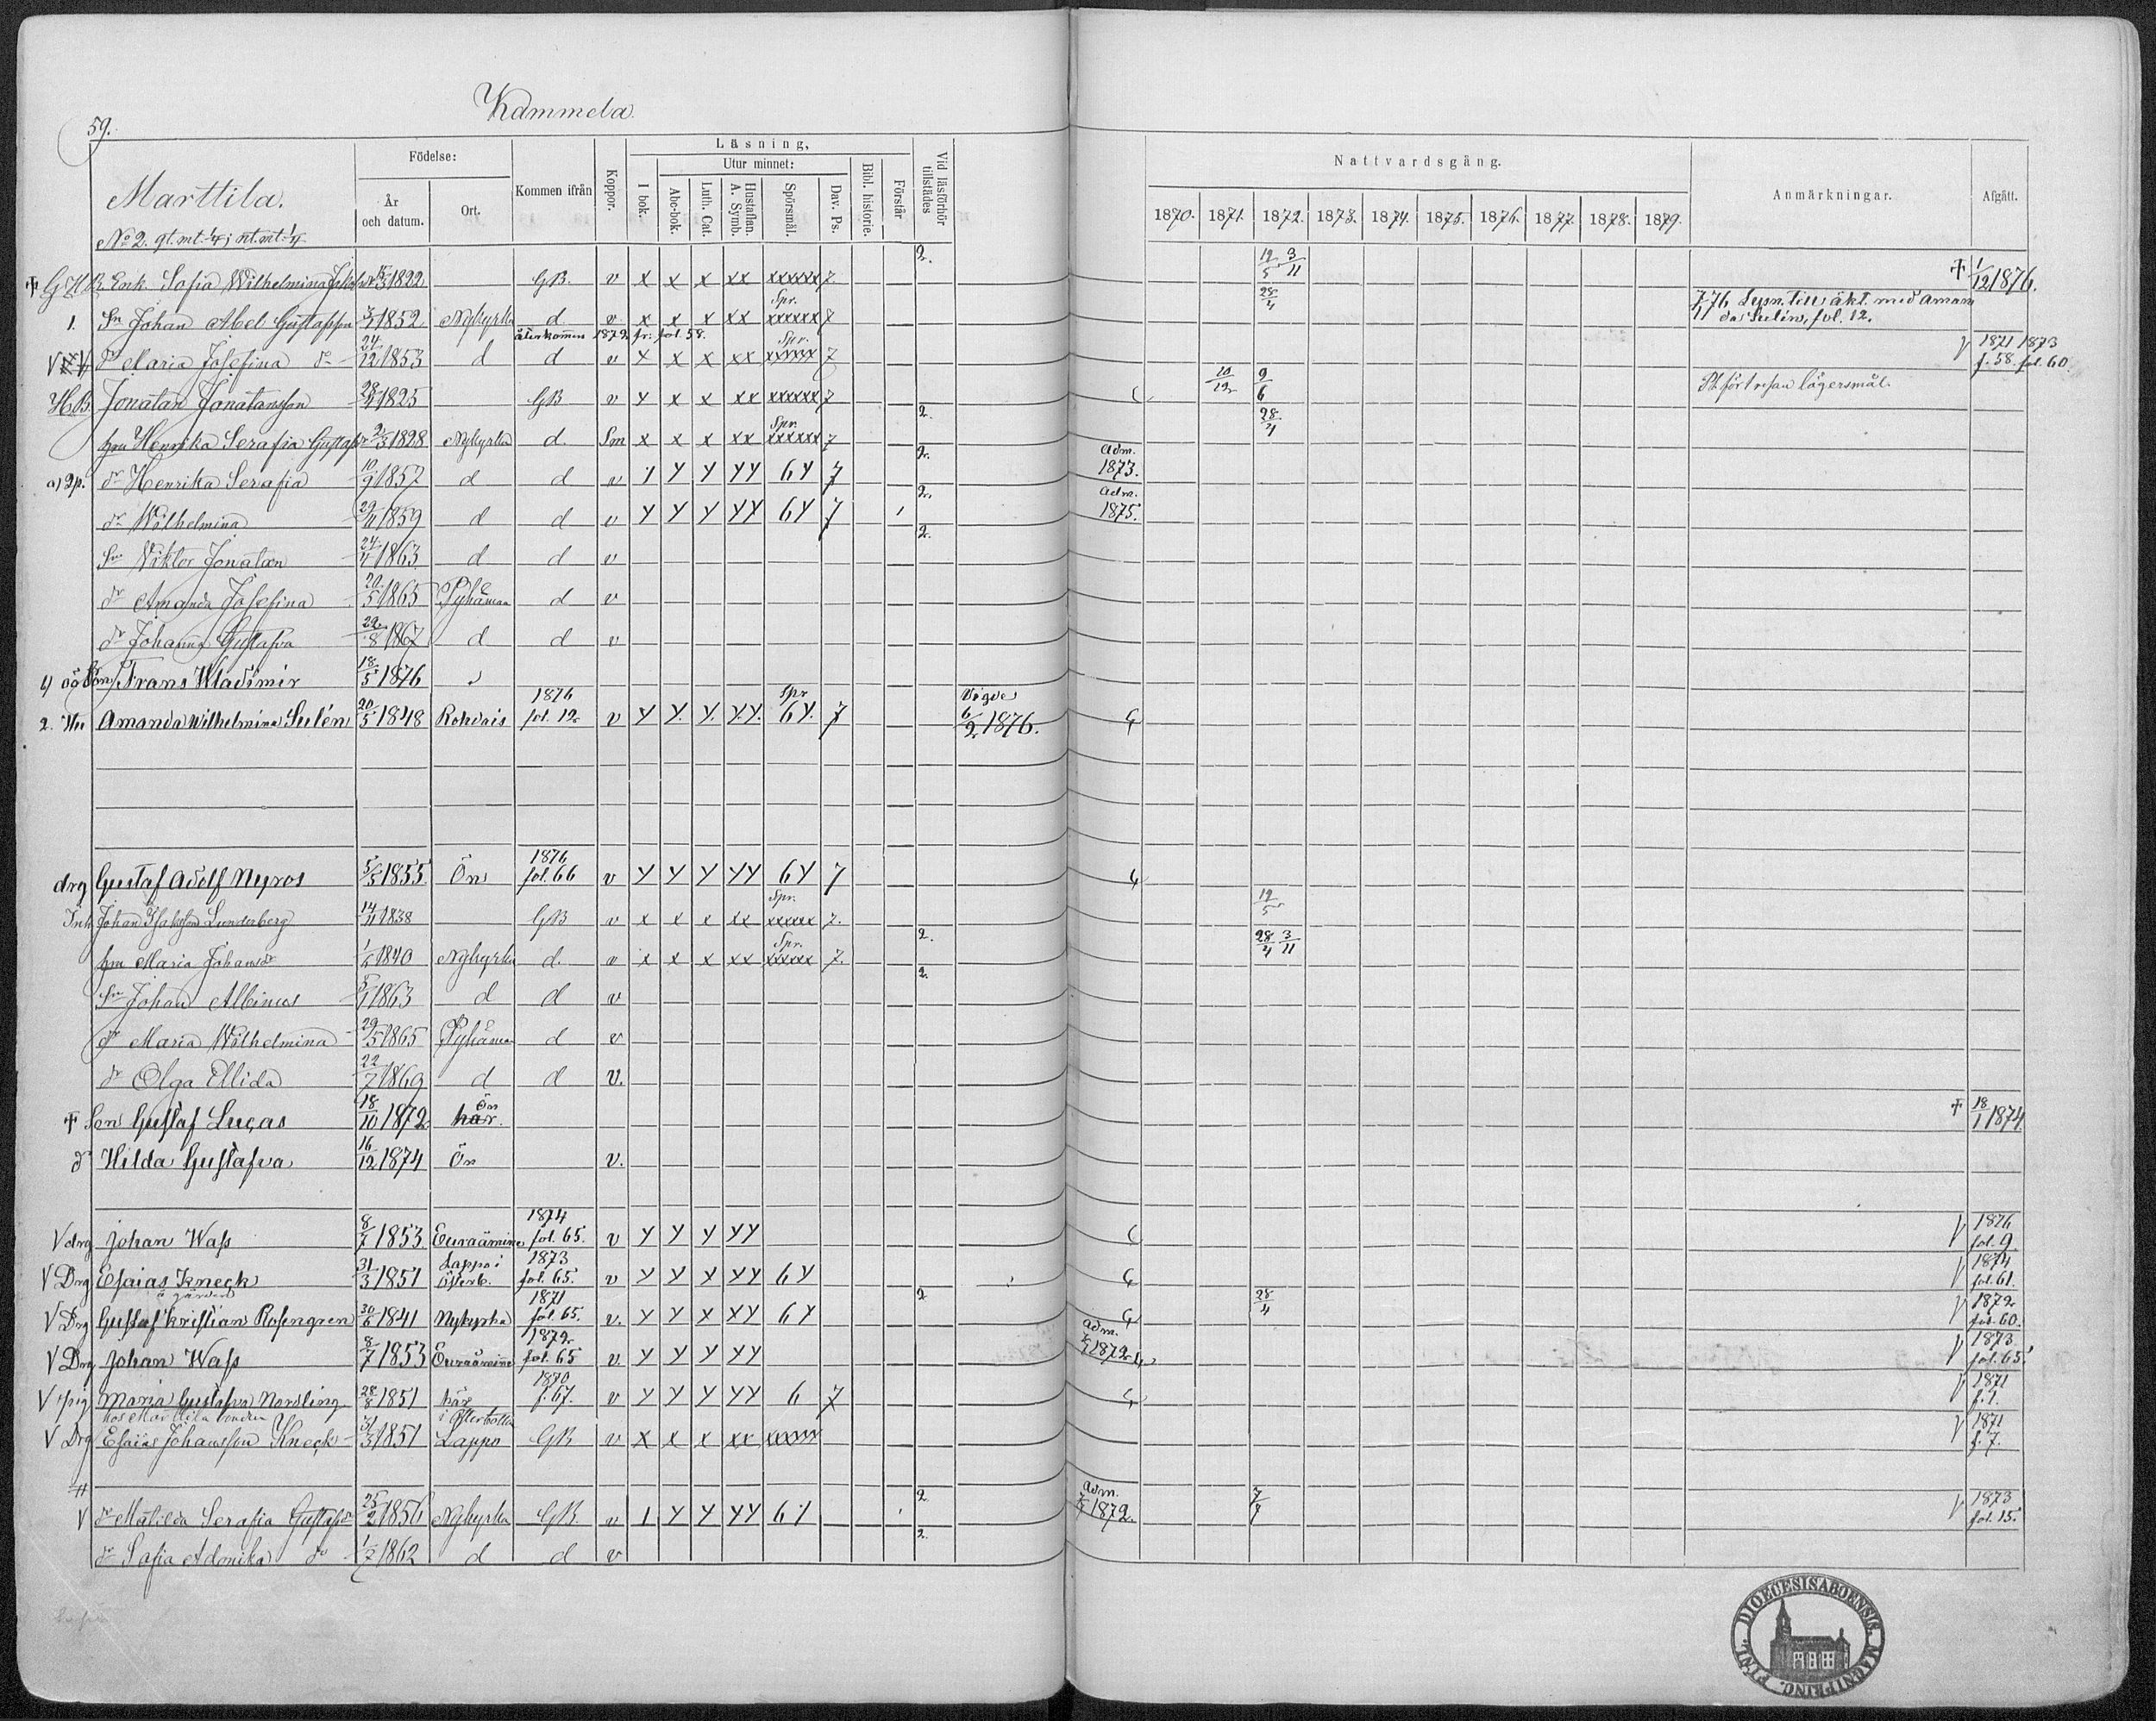 59.
Kammela
Marttila.
No 2. gt. mt. 1/4; nt. mt. 1/4.
Födelse:
År och datum.
Ort.
Kommen ifrån
Koppor.
Läsning,
I bok.
Utur minnet:
Abc-bok.
Luth. Cat.
Hustaflan. A. Symb.
Spörsmål.
Dav. Ps.
Bibl. historie.
Förstår
Vid läsförhör tillstädes
Nattvardsgång.
1870. 1871. 1872. 1873. 1874. 1875. 1876. 1877. 1878. 1879.
Anmärkningar.
Afgått.
Enk. Sofia Wilhelmina 1822 GB. v x x x xx xxxxxx 7 2. 12/5 3/11 † 1/12 1876.
1. Sn Johan Abel Gustafsson 1852 Nykyrka d v x x x xx Spr. xxxxxx 7 28/4 Lysn. till äkt. med Amanda Sulén, fol. 12.
återkommen 1872 fr. fol. 58.
V dr Maria Josefina dr 24/12 1853 d d v x x x xx Spr. xxxxxx 7 V 1871 1873 f. 58. fol. 60.
HB. Jonatan Jonatansson 1825 GB v x x x xx xxxxxx 7 10/12 9/6
hru Henrika Serafia 2/3 1828 Nykyrka d. Sm x x x xx Spr. xxxxxx 7 2. 28/4
dr Henrika Serafia 10/9 1857 d d v Y Y Y YY 6Y 7 2. Adm. 1873.
dr Wilhelmina 29/11 1859 d d v Y Y Y YY 6Y 7 2. Adm. 1875.
Sn Viktor Jonatan 24/4 1863 d d v 2.
dr Amanda Josefina 20/5 1865 Pyhämaa d v
dr Johanna Gustafva 22/8 1867 d d v
Frans Wladimir 18/5 1876
2. Hu Amanda Wilhelmina Sulén 20/5 1848 Rohdais 1876 fol. 12 v Y Y. Y. Y.Y. Spr 6Y. 7 Vigde 6/2 1876.
drg Gustaf Adolf Nyros 5/5 1855 Ön 1876 fol. 66 v Y Y Y YY 6Y 7
Inh Johan Isaksson Lunderberg 14/11 1838 GB v x x x xx Spr. xxxxxx 7. 12/5
hru Maria Johansdr 1/6 1840 Nykyrka d. v x x x xx Spr. xxxxxx 7. 2. 28/4 3/11
Sn Johan Albinus 1863 d d v 2.
dr Maria Wilhelmina 29/5 1865 Pyhämaa d v
dr Olga Ellida 22/7 1869 d d v.
† Son Gustaf Lucas 18/10 1872 här. Ön † 18/1 1874
dr Hilda Gustafva 16/12 1874 Ön v.
V drg Johan Wass 8/7 1853 Euraåminne 1874 fol. 65. v Y Y Y YY V 1876 fol. 9
V Drg Esaias Kneck 31/3 1851 Lappo i Österb. 1873 fol. 65. v Y Y x YY 6Y V 1874 fol. 61.
V Drg Gustaf Kristian Rosengren 30/6 1841 Nykyrka 1871 fol. 65. v. Y Y x XY 6Y 2 28/4 V 1872 fol. 60.
V Drg Johan Wass 8/7 1853 Euraåminne 1872 fol. 65 v. Y Y Y YY Adm. 1872 V 1873 fol. 65.
V pig Maria Gustafva Norsling 28/8 1851 här 1870 f. 67. v Y Y Y YY 6 7 V 1871 f. 1.
hos Marttila bonden
V Drg Esaias Johansson Kneck 31/3 1851 i Österbotten Lappo GB v x x x xx xxxxxx V 1871 f. 7.
V dr Matilda Serafia Gustafsdr 25/2 1856 Nykyrka GB. v Y Y Y YY 6Y 2 Adm. 1872. 7/7 V 1873 fol. 15.
dr Sofia Adonika dr 1/7 1862 d d v 2.
DIOECESIS ABOENSIS. MAGNI PRINC. FINL.